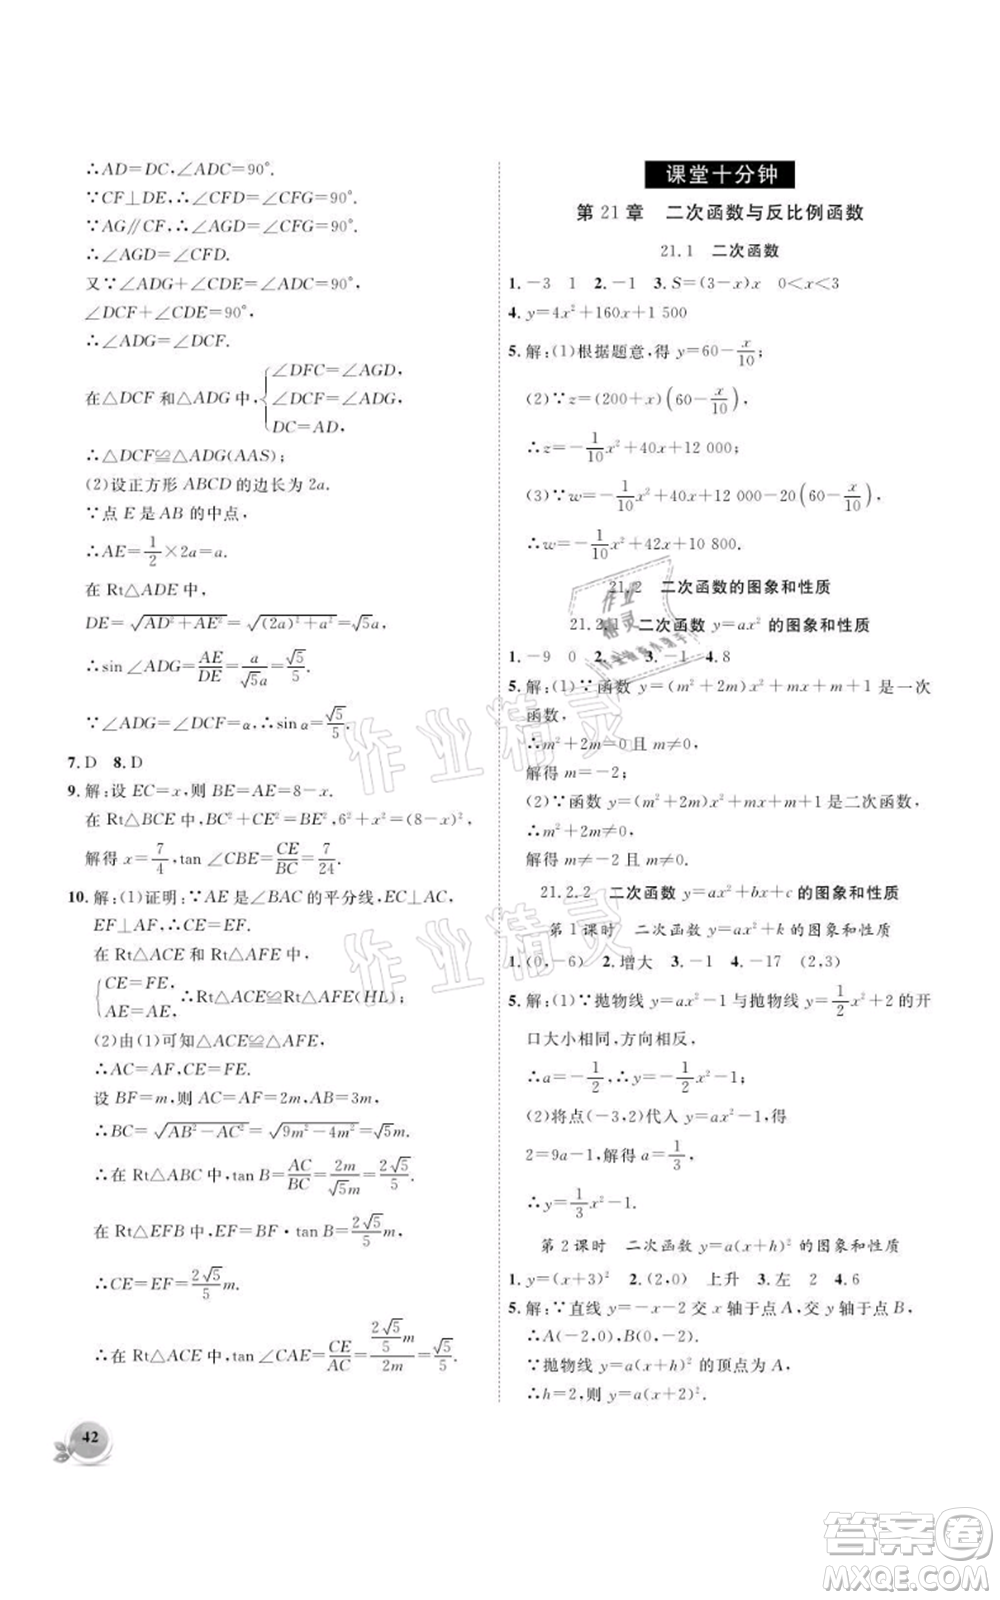 ∴AD=DC,∠ADC=90°.
∵CF⊥DE,∴∠CFD=∠CFG=90°.
∵AG∥CF,∴∠AGD=∠CFG=90°.
∴∠AGD=∠CFD.
又∵∠ADG+∠CDE=∠ADC=90°,
∠DCF+∠CDE=90°,
∴∠ADG=∠DCF.
在△DCF 和△ADG 中,{∠DFC=∠AGD,
∠DCF=∠ADG,
DC=AD,
∴△DCF≌△ADG(AAS);
(2)设正方形 ABCD 的边长为 2a.
∵点 E 是 AB 的中点,
∴AE=1/2×2a=a.
在 Rt△ADE 中,
DE=√(AD²+AE²)=√((2a)²+a²)=√5a,
∴sin∠ADG=AE/DE=a/(√5a)=√5/5.
∵∠ADG=∠DCF=α,∴sin α=√5/5.
7. D 8. D
9. 解:设 EC=x,则 BE=AE=8-x.
在 Rt△BCE 中,BC²+CE²=BE²,6²+x²=(8-x)²,
解得 x=7/4,tan∠CBE=CE/BC=7/24.
10. 解:(1)证明:∵AE 是∠BAC 的平分线,EC⊥AC,
EF⊥AF,∴CE=EF.
在 Rt△ACE 和 Rt△AFE 中,
{CE=FE,
AE=AE,∴Rt△ACE≌Rt△AFE(HL);
(2)由(1)可知△ACE≌△AFE,
∴AC=AF,CE=FE.
设 BF=m,则 AC=AF=2m,AB=3m,
∴BC=√(AB²-AC²)=√(9m²-4m²)=√5m.
∴在 Rt△ABC 中,tan B=AC/BC=2m/(√5m)=2√5/5.
在 Rt△EFB 中,EF=BF·tan B=(2√5/5)m,
∴CE=EF=(2√5/5)m.
∴在 Rt△ACE 中,tan∠CAE=CE/AC=((2√5/5)m)/(2m)=√5/5.
42
课堂十分钟
第 21 章 二次函数与反比例函数
21.1 二次函数
1. -3 1 2. -1 3. S=(3-x)x 0<x<3
4. y=4x²+160x+1 500
5. 解:(1)根据题意,得 y=60-x/10;
(2)∵z=(200+x)(60-x/10),
∴z=-1/10x²+40x+12 000;
(3)∵w=-1/10x²+40x+12 000-20(60-x/10),
∴w=-1/10x²+42x+10 800.
21.2 二次函数的图象和性质
21.2.1 二次函数 y=ax² 的图象和性质
1. -9 0 2. 3. -1 4. 8
5. 解:(1)∵函数 y=(m²+2m)x²+mx+m+1 是一次
函数,
∴m²+2m=0 且 m≠0,
解得 m=-2;
(2)∵函数 y=(m²+2m)x²+mx+m+1 是二次函数,
∴m²+2m≠0,
解得 m≠-2 且 m≠0.
21.2.2 二次函数 y=ax²+bx+c 的图象和性质
第 1 课时 二次函数 y=ax²+k 的图象和性质
1. (0,-6) 2. 增大 3. -1 4. -17 (2,3)
5. 解:(1)∵抛物线 y=ax²-1 与抛物线 y=1/2x²+2 的开
口大小相同,方向相反,
∴a=-1/2,∴y=-1/2x²-1;
(2)将点(-3,2)代入 y=ax²-1,得
2=9a-1,解得 a=1/3,
∴y=1/3x²-1.
第 2 课时 二次函数 y=a(x+h)² 的图象和性质
1. y=(x+3)² 2. (2,0) 上升 3. 左 2 4. 6
5. 解:∵直线 y=-x-2 交 x 轴于点 A,交 y 轴于点 B,
∴A(-2,0),B(0,-2).
∵抛物线 y=a(x+h)² 的顶点为 A,
∴h=2,则 y=a(x+2)².
作业精灵
作业精灵
作业精灵
答案圈
MXQE.COM